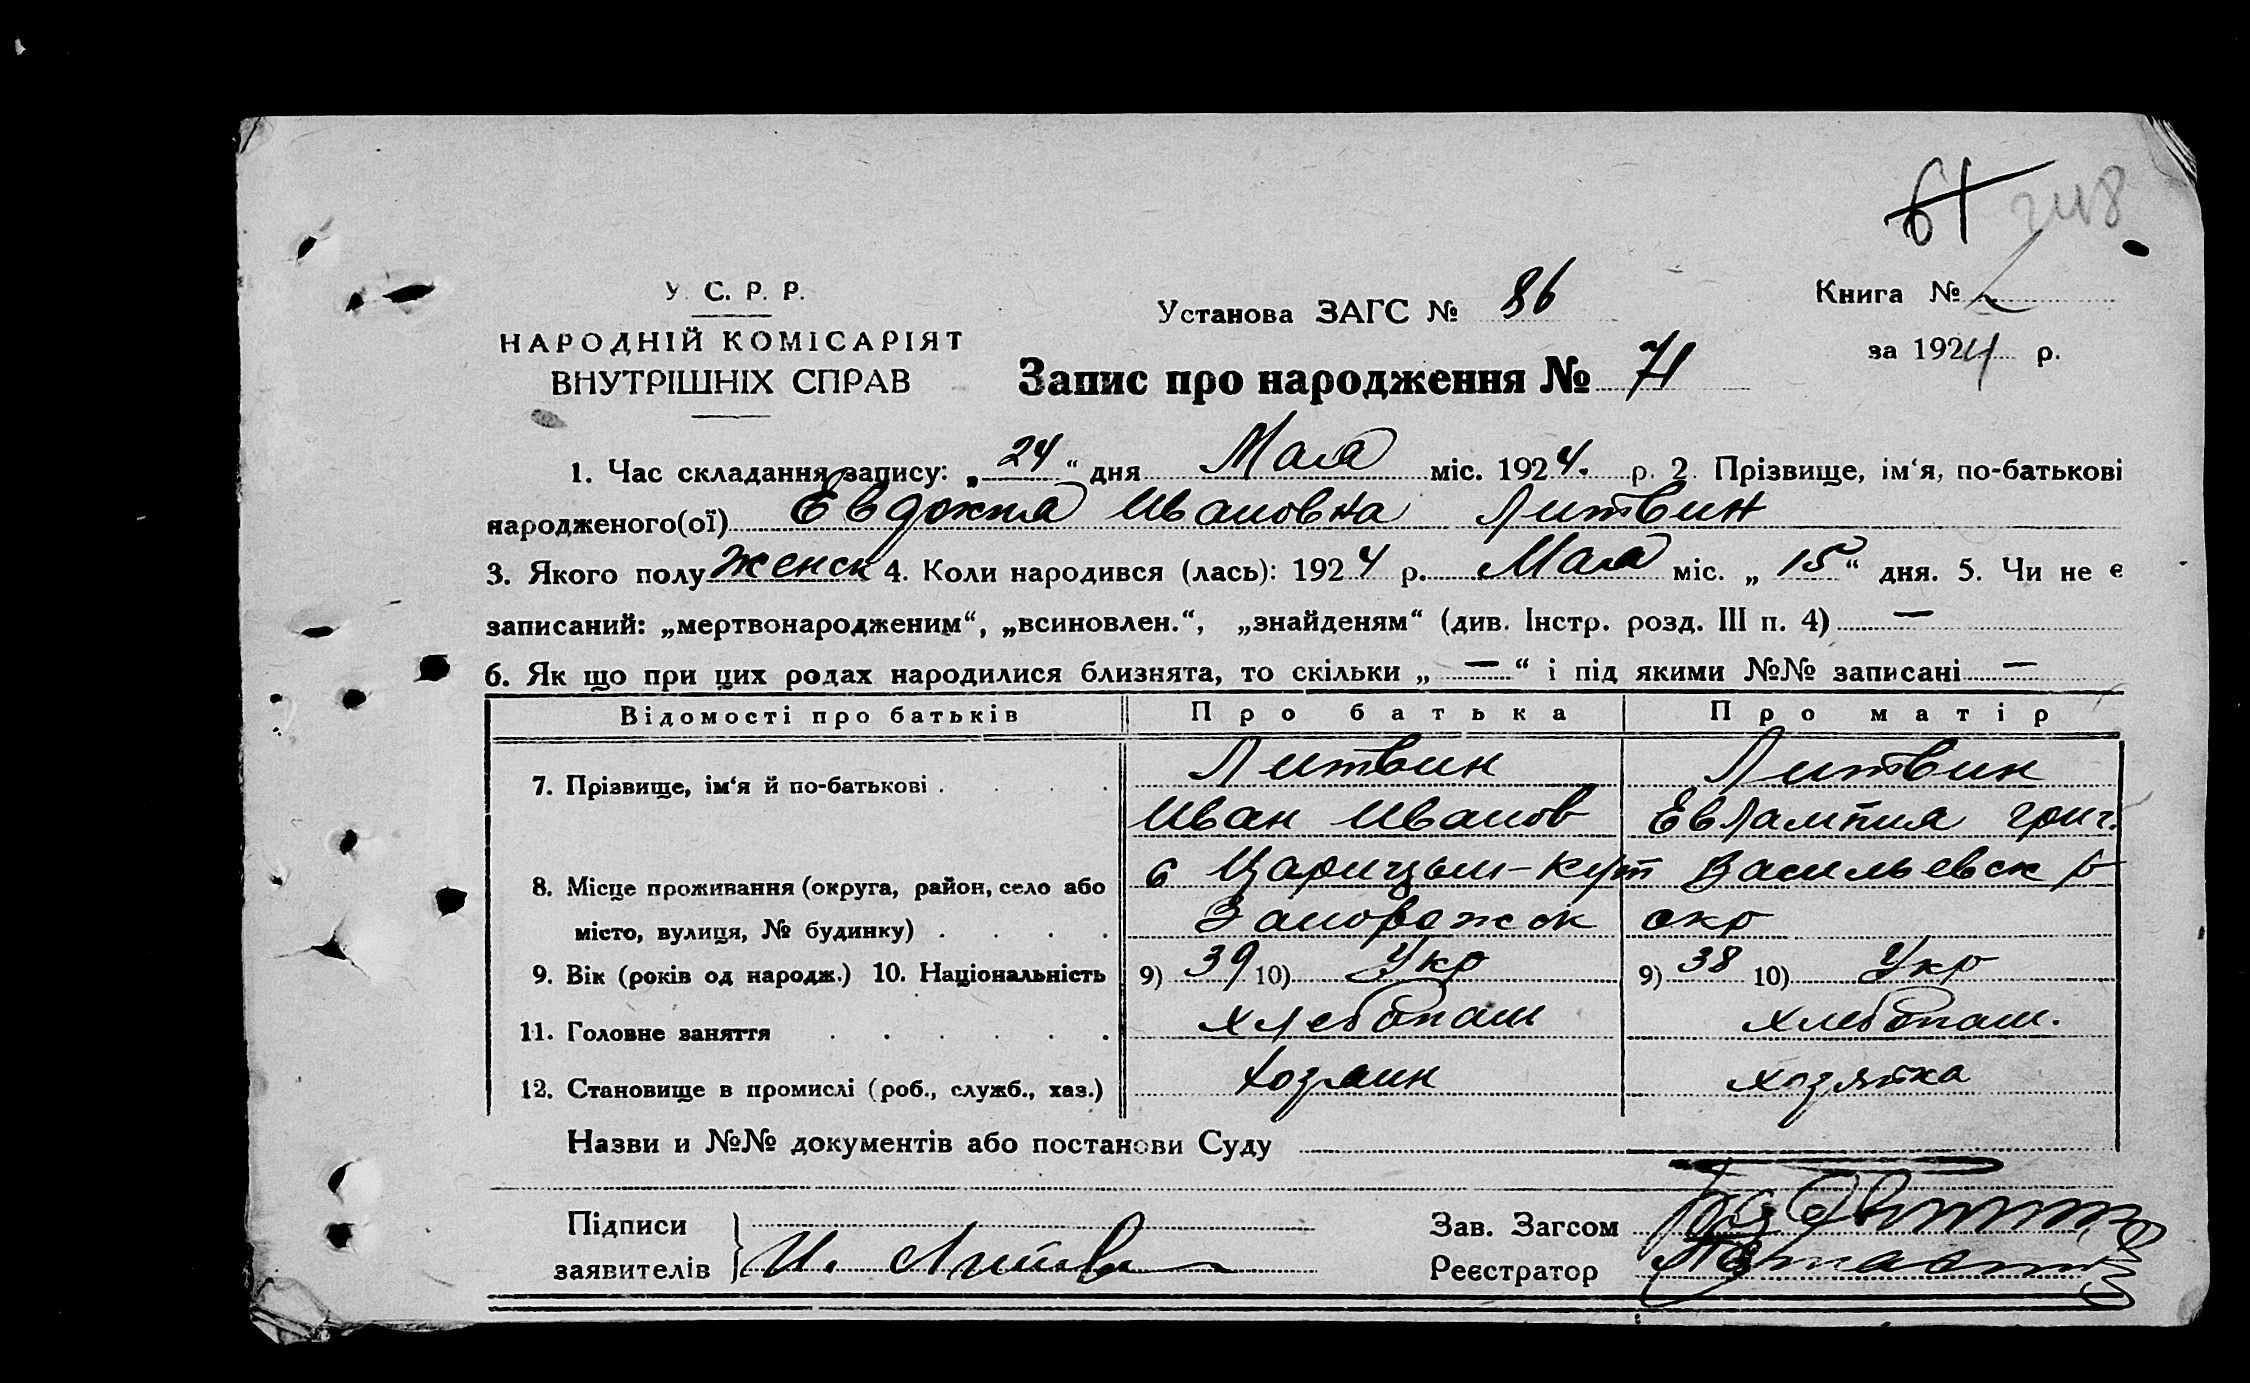 61 248
У. С. Р. Р.
НАРОДНІЙ КОМІСАРІЯТ
ВНУТРІШНІХ СПРАВ
Установа ЗАГС № 86
Книга №
за 1924 р.
Запис про народження № 71
1. Час складання запису: „24“ дня Мая міс. 1924. р. 2. Прізвище, ім‘я, по-батькові
народженого(ої) Евдокия Ивановна Литвин
3. Якого полу женск 4. Коли народився (лась): 1924 р. Мая міс. „15“ дня. 5. Чи не є
записаний: „мертвонародженим“, „всиновлен.“, „знайденям“ (див. Інстр. розд. III п. 4) —
6. Як що при цих родах народилися близнята, то скільки „—“ і під якими №№ записані —
Відомості про батьків Про батька Про матір
7. Прізвище, ім‘я й по-батькові . . . . Литвин Литвин
Иван Иванов Евлампия Григ.
8. Місце проживання (округа, район, село або с Царицын-Кут Васильевск р
місто, вулиця, № будинку) . . . . Запорожск окр
9. Вік (років од народж.) 10. Національність 9) 39 10) Укр 9) 38 10) Укр
11. Головне заняття . . . . . . хлебопаш хлебопаш.
12. Становище в промислі (роб., служб., хаз.) хозяин хозяйка
Назви и №№ документів або постанови Суду
Підписи
заявителів И. Литвин
Зав. Загсом
Реєстратор